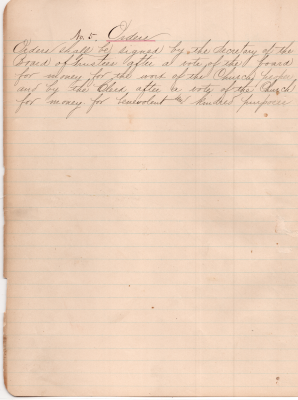 No 5. Orders
Orders shall be signed by the Secretary of the
Board of trustees after a vote of the board
for money for the use of the Church
and by the Clerk after a vote of the Church
for money for benevolent & kindred purposes